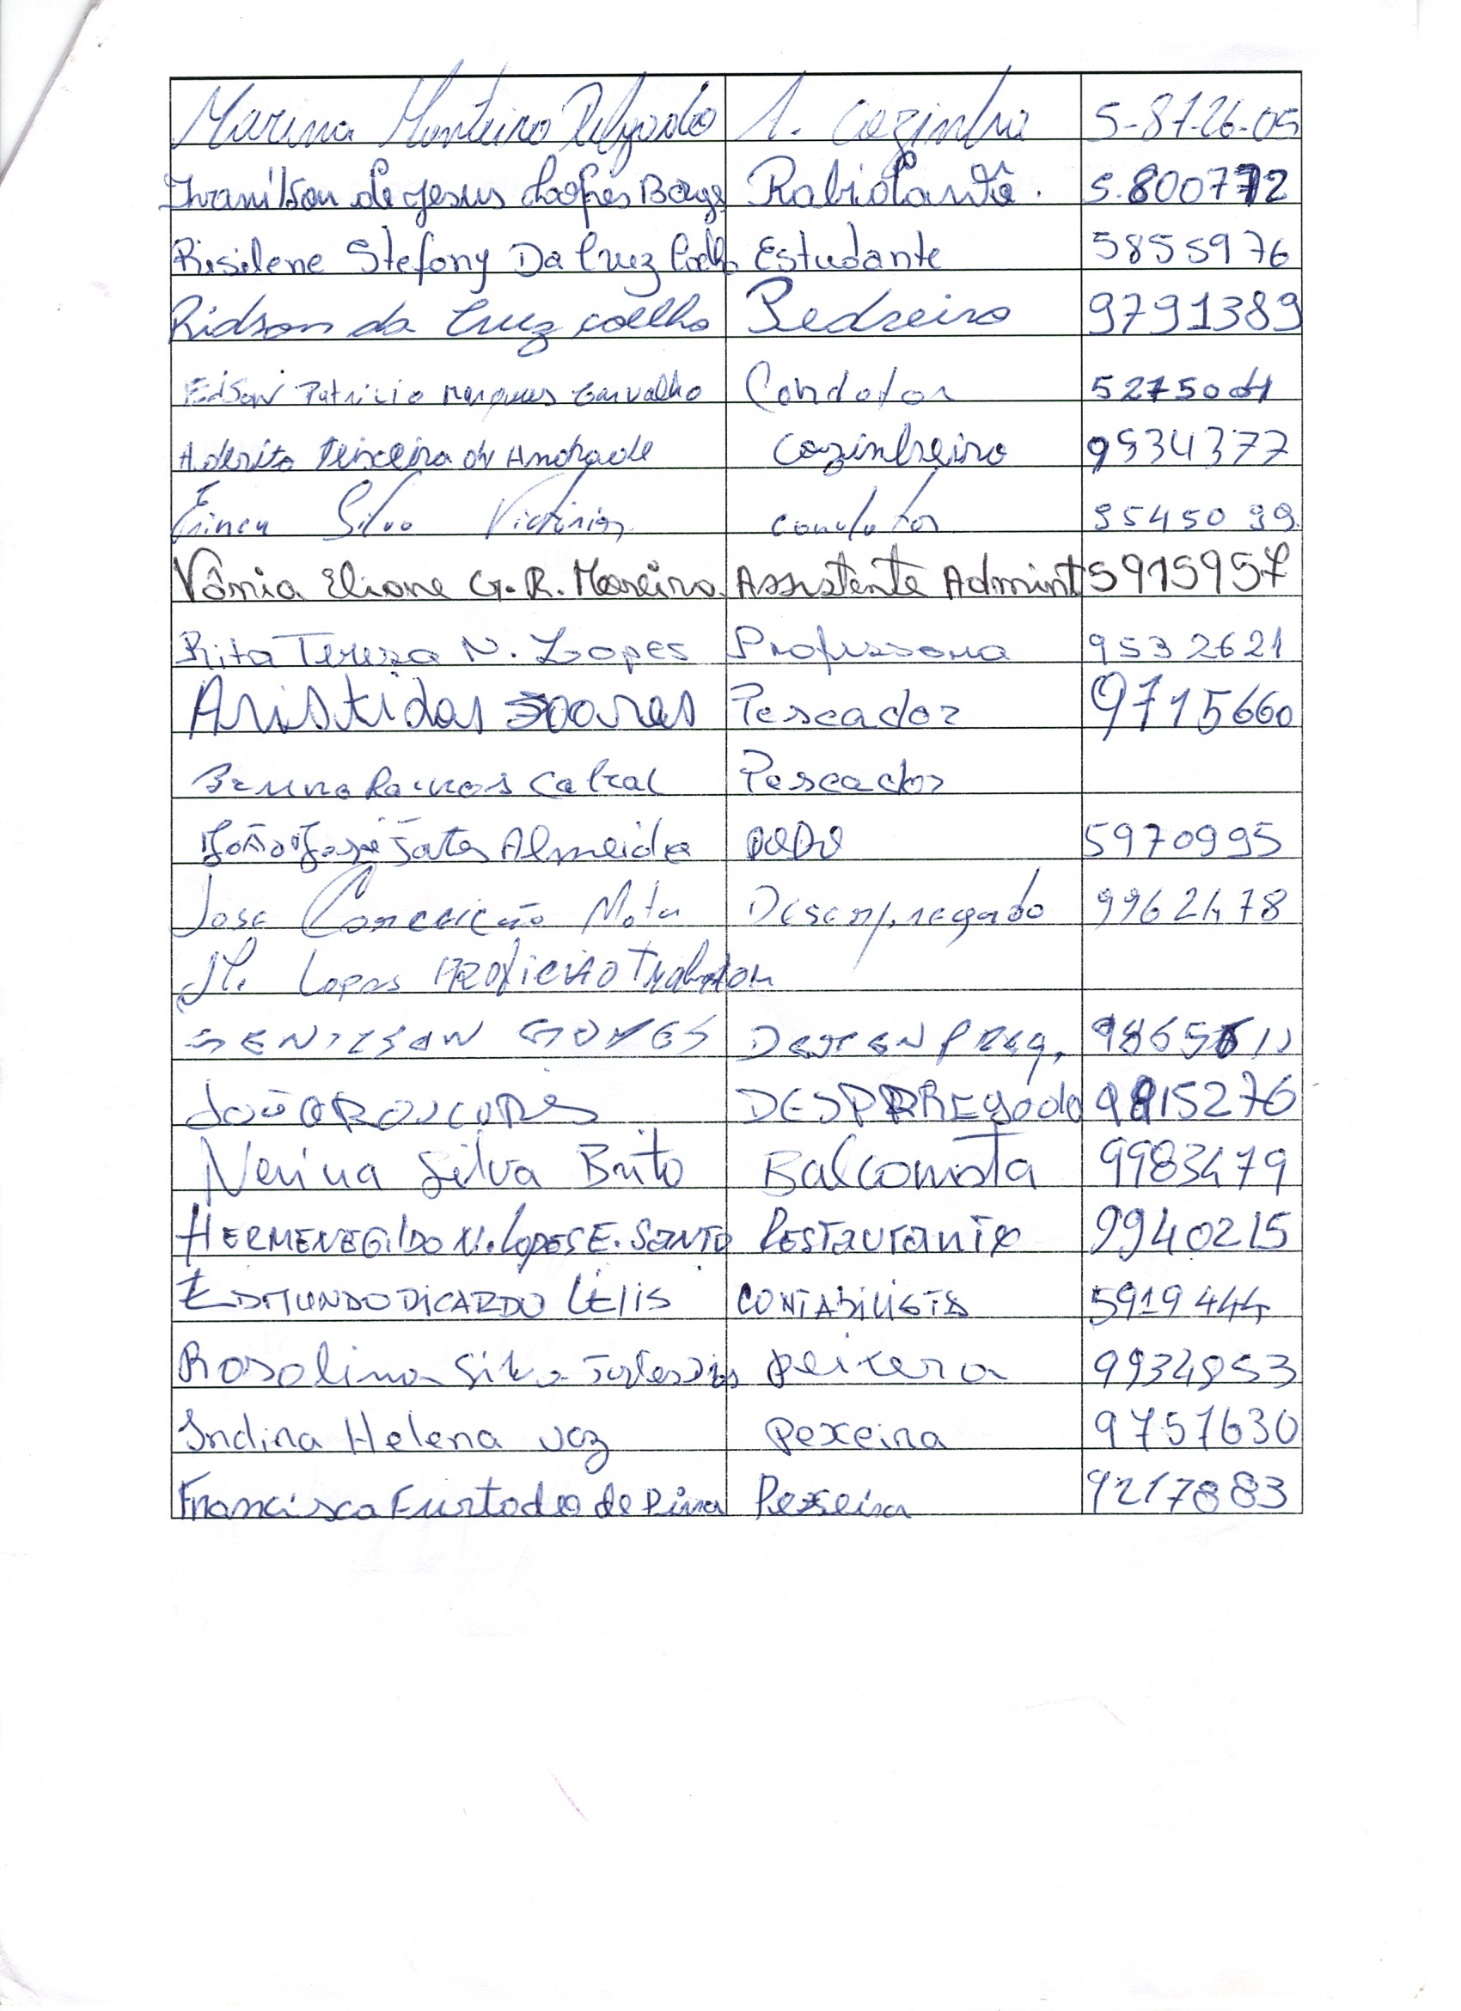 Marina Monteiro Delgado A. Cozinha 5-87-26-05
Ivanilson de Jesus Lopes Borge Rabidantê. 5.800772
Risilene Stefony Da Cruz Coelho Estudante 5855976
Ridson da Cruz coelho Pedreiro 9791389
Edson Patricio Marques Carvalho Condotor 5275001
Aderito Teixeira de Andrade Cozinheiro 9534377
Silva condotor 9545099
Vânia Eliane G. R. Moreira Assistente Admint 5915957
Rita Teresa N. Lopes Professora 9532621
Aristidas soares Pescador 9715660
Bruno Ramos Cabral Pescador
João José Almeida 5970995
Jose Conceição Mota Desempregado 9962478
M. Lopes
GENILSON GOMES Desenpreg. 
João DESPRREgado 9815276
Nerina Silva Brito Balconista 9983479
HERMENEGILDO N. LOPES E. SANTO RESTAURANTE 9940215
EDMUNDO DICARDO LÉLIS CONTABILISTA 5919444
Rosalina Silva peixera 9934853
Indira Helena vaz pexeira 9757630
Francisca Furtado de Pina Pexeira 9217883